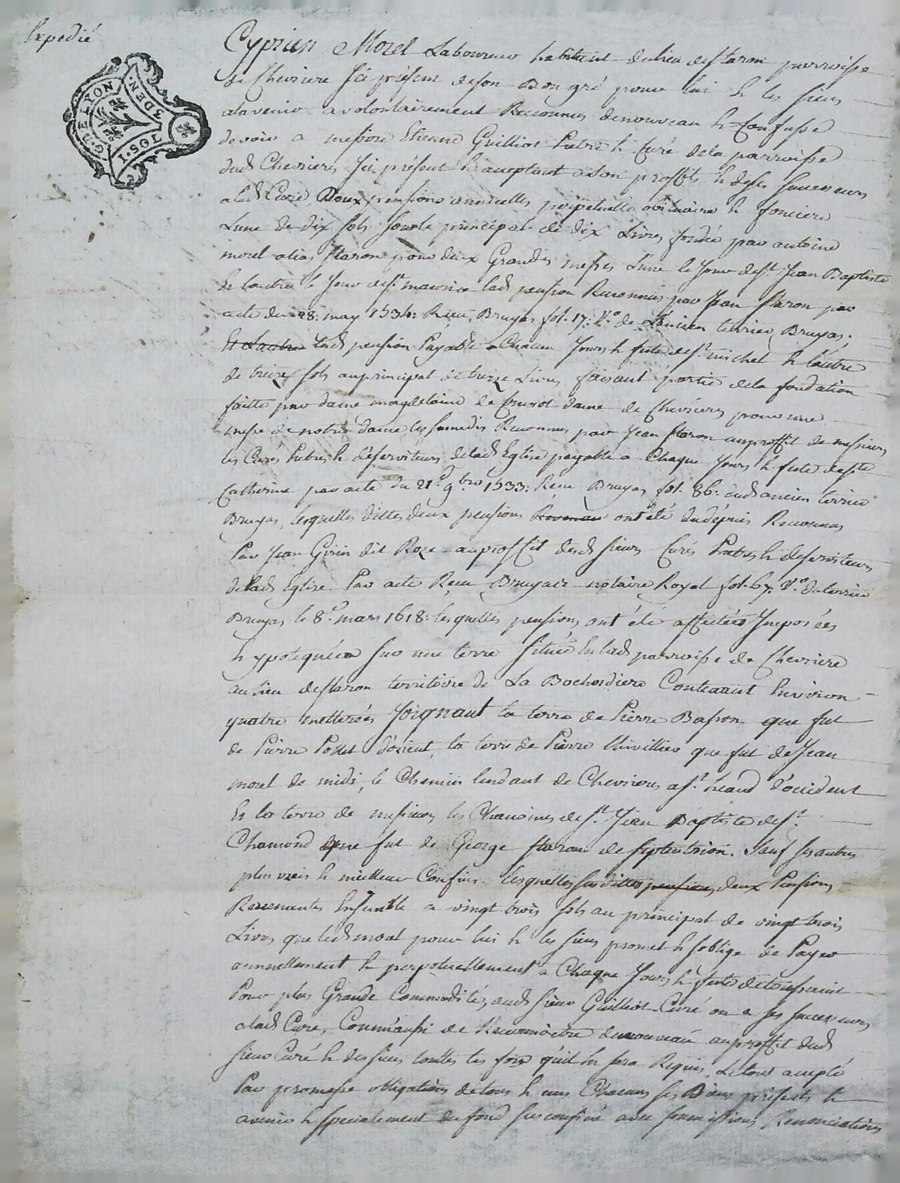 Expedié
G. DE LYON
3 DEN.
I. SOL
Cyprien Morel Laboureur habitant du lieu de flaron parroisse
de Chevriere Ici présent de son Bon gré pour lui & les siens
alavenir a volontairement Reconnu denouveau & Confessé
devoir a messire Etienne Guilliot Prêtre & Curé dela parroisse
dud Chevrieres Ici présent & acceptant a son proffit & de ses successeurs
alad Cure Deux pensions annuelles perpetuelles obituaire & fonciere
Lune de dix sols sous le principal de dix Livres fondée par antoine
morel alias flaron pour deux Grandes messes L'une le Jour de st Jean Baptiste
& lautre le Jour de st maurice lad pension Reconnue par Jean flaron par
acte du 28: may 1534: Reçu Bruyas fol. 17: Vo de L'ancien terrier Bruyas:
Et Lautre lad pension Payable a Chacun Jours & feste de st michel & lautre
de treize sols au principal de treize Livres faisant partie dela fondation
faitte par dame magdelaine de dame de Chevrieres pour une
messe de notre dame les samedis Reconnue par Jean flaron au proffit de messieurs
les Curés Prêtres & déserviteurs de lad Eglise payable a Chaque Jours & feste de ste
Catherine par acte du 21e 9bre 1533: Reçu Bruyas fol. 86: dud ancien terrier
Bruyas, lesquelles dittes deux pensions ont été du depuis Reconnues
Par Jean Girin dit Roze au proffit desd sieurs Curés Prêtres & deserviteurs
de lad Eglise Par acte Reçu Bruyas notaire Royal fol. 67: Vo. du terrier
Bruyas le 8e mars 1618: lesquelles pensions ont été affectées Imposées
& ypotequées sur une terre Située En lad parroisse de Chevriere
au lieu de flaron territoire de La Bochordiere Contenant Environ
quatre metterées Joignant la terre de Pierre Basson que fut
de Pierre d'orient, la terre de Pierre que fut de Jean
morel de midi, le Chemin tendant de Chevrieres a st heand d'occident
Et la terre de messieurs les Chanoines de st. Jean Baptiste de st.
Chamond que fut de George flaron de septentrion. Sauf ses autres
plus vrais & meilleur Confins. Lesquelles susdittes pensions, deux Pensions
Revenantes Ensemble a vingt trois sols au principal de vingt trois
Livres que led morel pour lui & les siens promet & s'oblige de Payer
annuellement & perpetuellement a Chaque Jours & feste de toussaint
Pour plus Grande Commodité, aud sieur Guilliot Curé ou a ses successeurs
alad Cure, Comm'aussi de Reconnoître denouveau au proffit dud
sieur Curé & des siens touttes les fois qu'il En sera Requis. Le tout accepté
Par promesse obligations de tous & uns Chacuns ses Biens présents &
avenir & specialement du fond sus confiné avec soumissions Renonciations